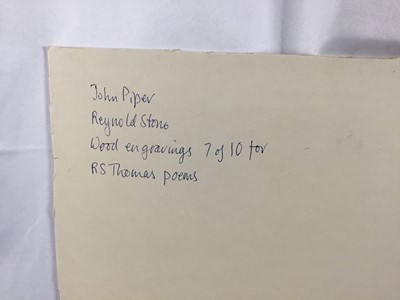 John Piper
Reynold Stone
Wood engravings 7 of 10 for
RS Thomas poems